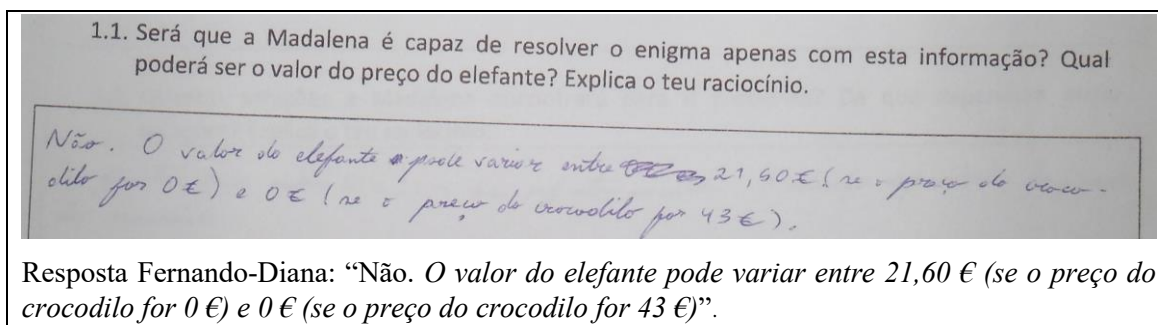 1.1. Será que a Madalena é capaz de resolver o enigma apenas com esta informação? Qual
poderá ser o valor do preço do elefante? Explica o teu raciocínio.
Não. O valor do elefante pode variar entre 21,60 € (se o preço do croco-
dilo for 0 €) e 0 € (se o preço do crocodilo for 43 €).
Resposta Fernando-Diana: “Não. O valor do elefante pode variar entre 21,60 € (se o preço do
crocodilo for 0 €) e 0 € (se o preço do crocodilo for 43 €)”.